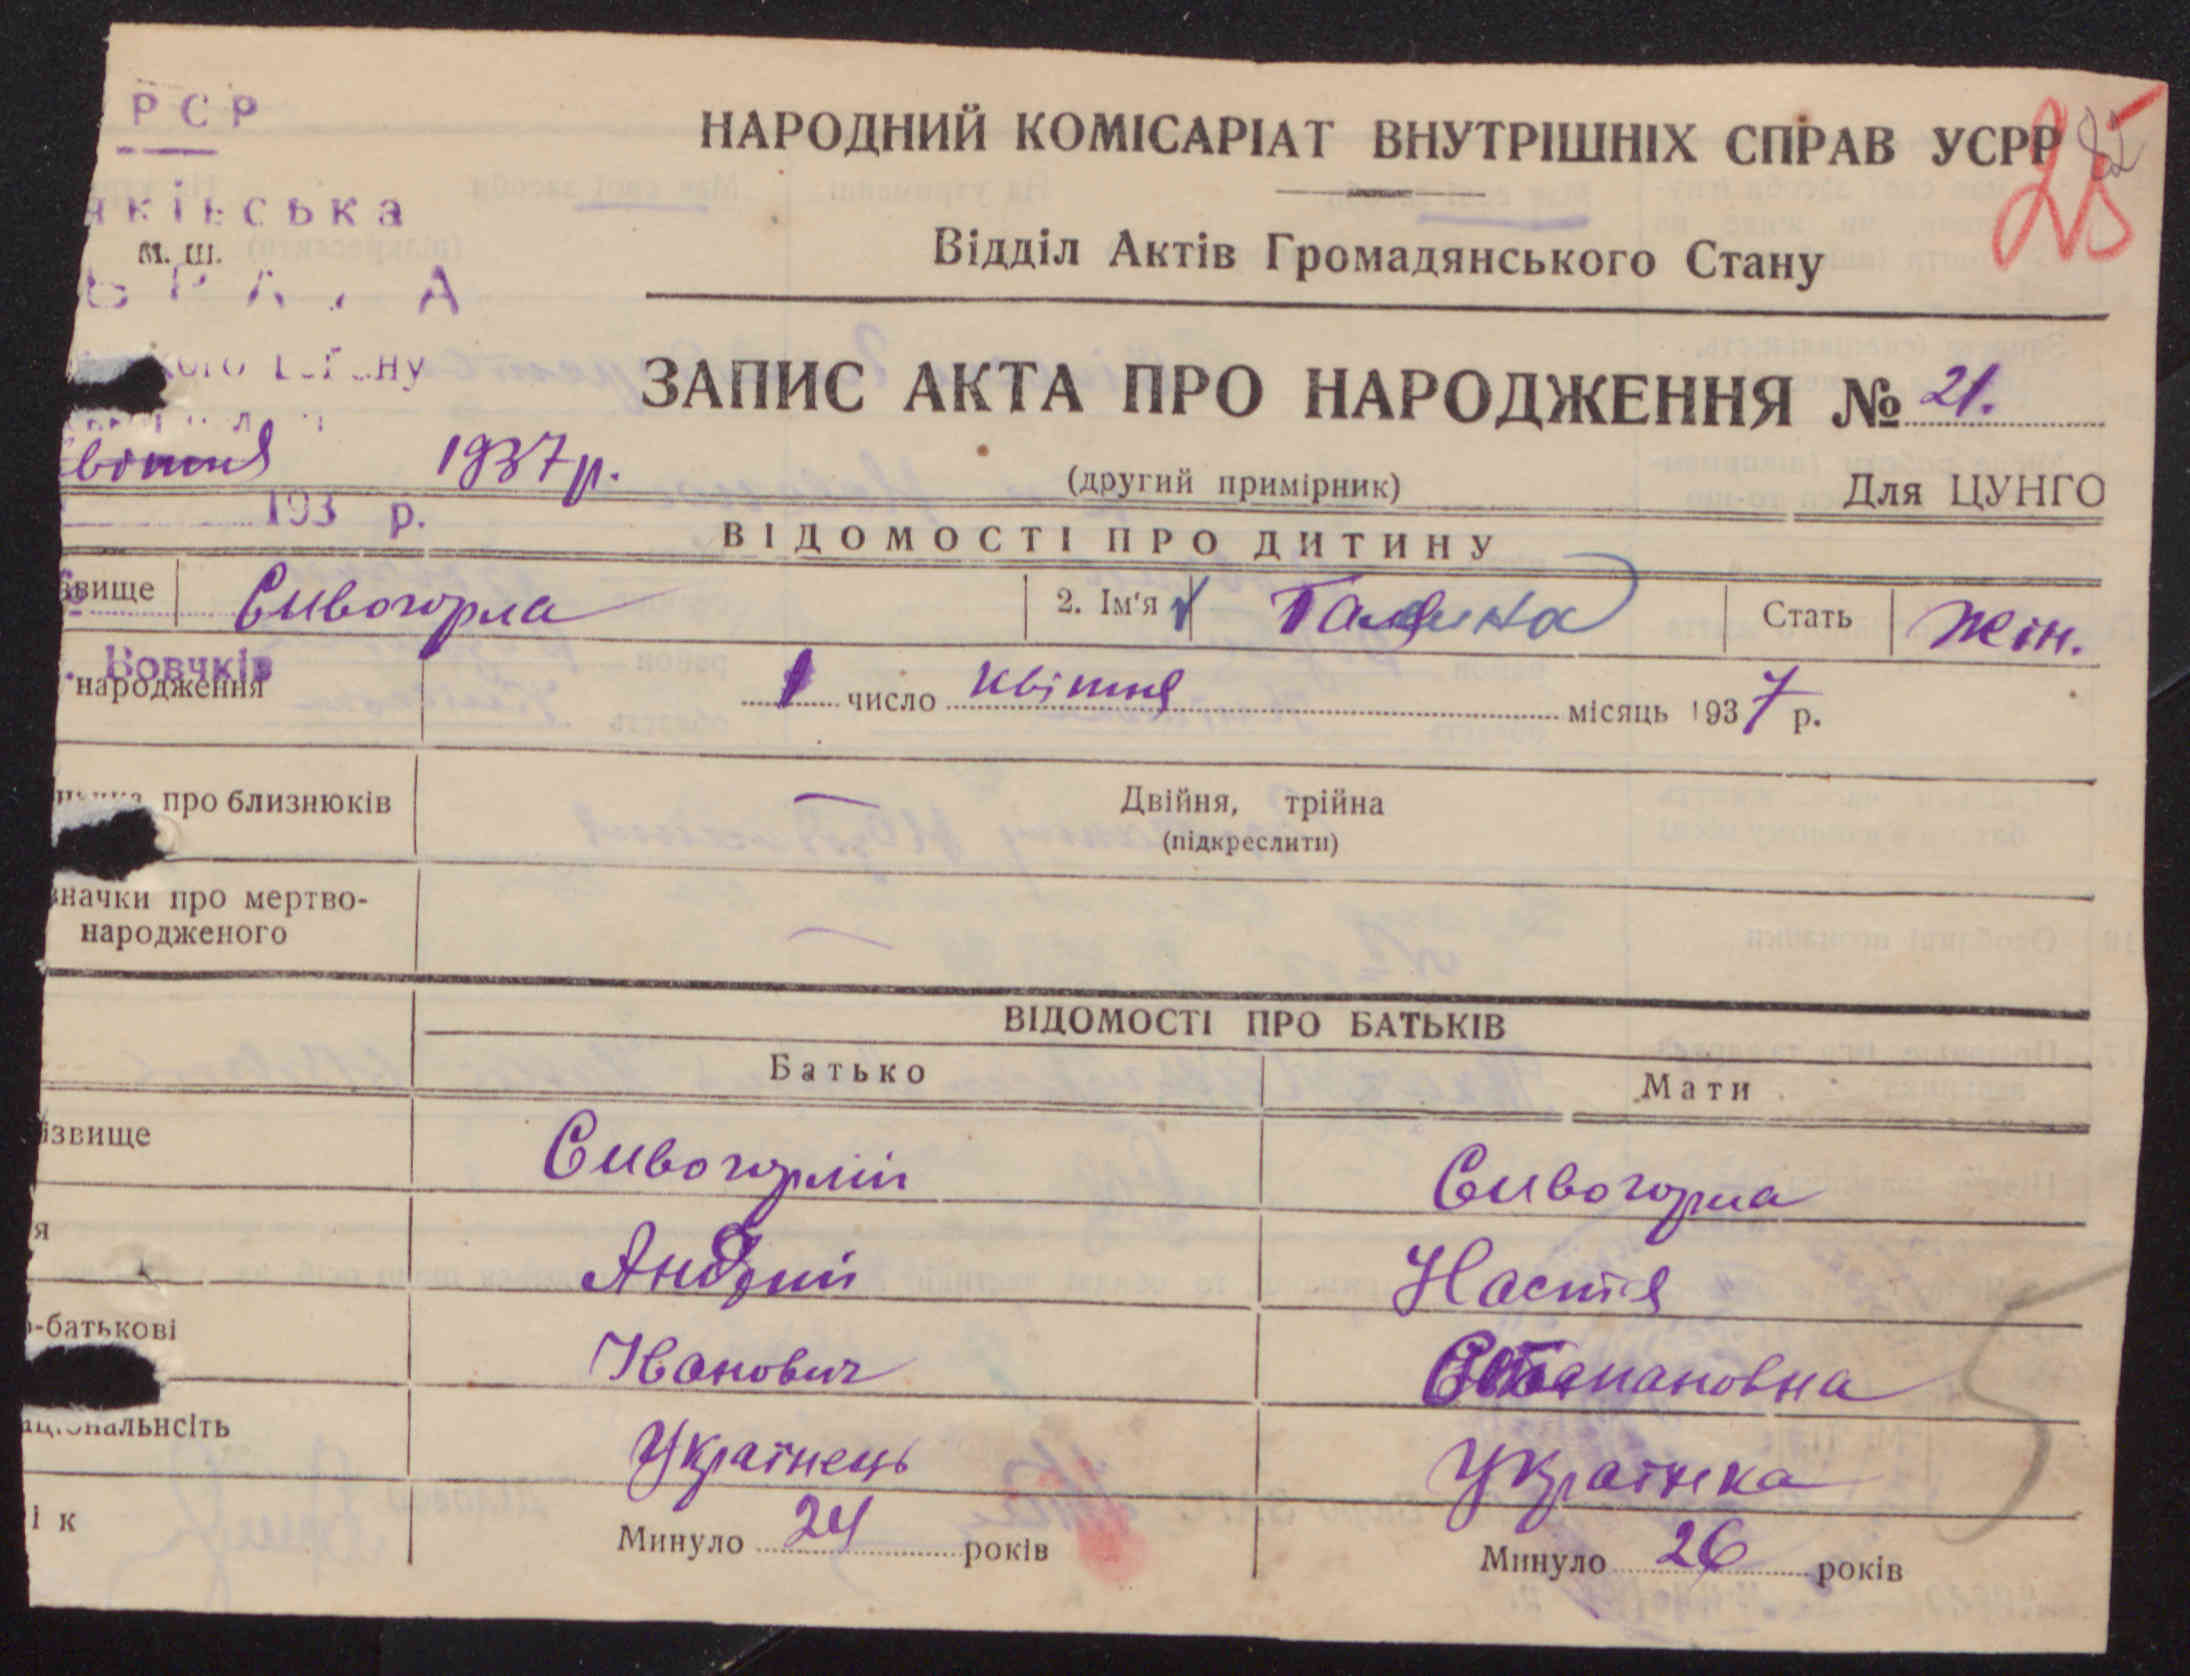 РСР
НАРОДНИЙ КОМІСАРІАТ ВНУТРІШНІХ СПРАВ УСРР
25
ківська
м. ш.
Відділ Актів Громадянського Стану
кого
ну
ЗАПИС АКТА ПРО НАРОДЖЕННЯ № 21.
вітня 1937 р.
(другий примірник) Для ЦУНГО
193 р.
ВІДОМОСТІ ПРО ДИТИНУ
звище Сивогорла 2. Ім'я Галина Стать Жін.
Вовчків
народження 1 число квітня місяць 1937 р.
про близнюків — Двійня, трійна
(підкреслити)
значки про мертво-
народженого —
ВІДОМОСТІ ПРО БАТЬКІВ
Батько Мати
ізвище Сивогорлій Сивогорла
я Андрій Настя
-батькові Іванович Степановна
ціональнсіть Українець Українка
ік Минуло 24 років Минуло 26 років